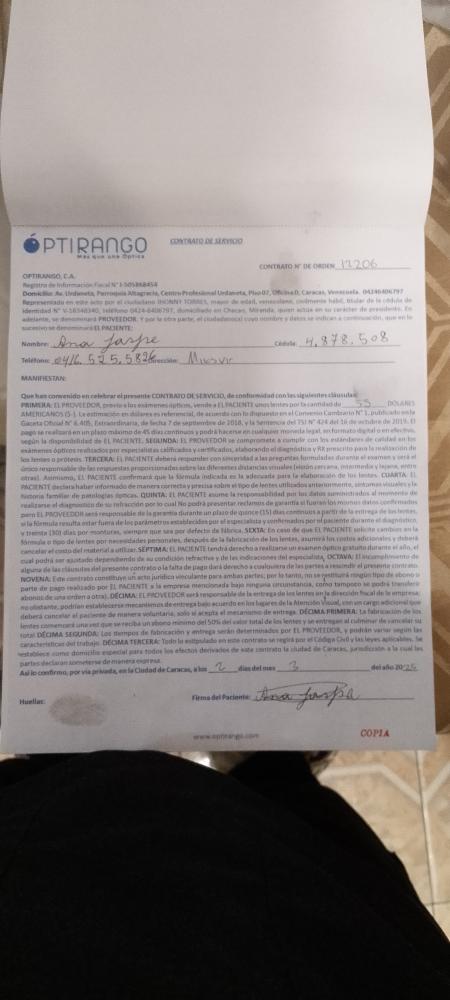 ÓPTIRANGO
Más que una Óptica
CONTRATO DE SERVICIO
CONTRATO Nº DE ORDEN 13206
OPTIRANGO, C.A.
Registro de Información Fiscal Nº J-505868454
Domicilio: Av. Urdaneta, Parroquia Altagracia, Centro Profesional Urdaneta, Piso 07, Oficina D, Caracas, Venezuela. 04246406797
Representado en este acto por el ciudadano JHONNY TORRES, mayor de edad, venezolano, civilmente hábil, titular de la cédula de
identidad Nº V-18348340, teléfono 0424-6406797, domiciliado en Chacao, Miranda, quien actúa en su carácter de presidente. En
adelante, se denominará PROVEEDOR. Y por la otra parte, el ciudadano(a) cuyo nombre y datos se indican a continuación, que en lo
sucesivo se denominará EL PACIENTE:
Nombre: Ana Jaspe Cédula: 4.878.508
Teléfono: 0416.525.5826 Dirección:
MANIFIESTAN:
Que han convenido en celebrar el presente CONTRATO DE SERVICIO, de conformidad con las siguientes cláusulas:
PRIMERA: EL PROVEEDOR, previo a los exámenes ópticos, vende a EL PACIENTE unos lentes por la cantidad de 55 DÓLARES
AMERICANOS ($-). La estimación en dólares es referencial, de acuerdo con lo dispuesto en el Convenio Cambiario N° 1, publicado en la
Gaceta Oficial N° 6.405, Extraordinaria, de fecha 7 de septiembre de 2018, y la Sentencia del TSJ N° 424 del 16 de octubre de 2019. El
pago se realizará en un plazo máximo de 45 días continuos y podrá hacerse en cualquier moneda legal, en formato digital o en efectivo,
según la disponibilidad de EL PACIENTE. SEGUNDA: EL PROVEEDOR se compromete a cumplir con los estándares de calidad en los
exámenes ópticos realizados por especialistas calificados y certificados, elaborando el diagnóstico y RX prescrito para la realización de
los lentes o prótesis. TERCERA: EL PACIENTE deberá responder con sinceridad a las preguntas formuladas durante el examen y será el
único responsable de las respuestas proporcionadas sobre las diferentes distancias visuales (visión cercana, intermedia y lejana, entre
otras). Asimismo, EL PACIENTE confirmará que la fórmula indicada es la adecuada para la elaboración de los lentes. CUARTA. EL
PACIENTE declara haber informado de manera correcta y precisa sobre el tipo de lentes utilizados anteriormente, síntomas visuales y la
historia familiar de patologías ópticas. QUINTA: EL PACIENTE asume la responsabilidad por los datos suministrados al momento de
realizarse el diagnóstico de su refracción por lo cual No podrá presentar reclamos de garantía si fueran los mismos datos confirmados
pero EL PROVEEDOR será responsable de la garantía durante un plazo de quince (15) días continuos a partir de la entrega de los lentes,
si la fórmula resulta estar fuera de los parámetros establecidos por el especialista y confirmados por el paciente durante el diagnóstico,
y treinta (30) días por monturas, siempre que sea por defecto de fábrica. SEXTA: En caso de que EL PACIENTE solicite cambios en la
fórmula o tipo de lentes por necesidades personales, después de la fabricación de los lentes, asumirá los costos adicionales y deberá
cancelar el costo del material a utilizar. SÉPTIMA: EL PACIENTE tendrá derecho a realizarse un examen óptico gratuito durante el año, el
cual podrá ser ajustado dependiendo de su condición refractiva y de las indicaciones del especialista, OCTAVA: El incumplimiento de
alguna de las cláusulas del presente contrato o la falta de pago dará derecho a cualquiera de las partes a rescindir el presente contrato.
NOVENA: Este contrato constituye un acto jurídico vinculante para ambas partes; por lo tanto, no se restituirá ningún tipo de abono o
parte de pago realizado por EL PACIENTE a la empresa mencionada bajo ninguna circunstancia, como tampoco se podrá transferir
abonos de una orden a otra). DÉCIMA: EL PROVEEDOR será responsable de la entrega de los lentes en la dirección fiscal de la empresa;
no obstante, podrían establecerse mecanismos de entrega bajo acuerdo en los lugares de la Atención Visual, con un cargo adicional que
deberá cancelar el paciente de manera voluntaria, solo si acepta el mecanismo de entrega. DÉCIMA PRIMERA: La fabricación de los
lentes comenzará una vez que se reciba un abono mínimo del 50% del valor total de los lentes y se entregan al culminar de cancelar su
total DÉCIMA SEGUNDA: Los tiempos de fabricación y entrega serán determinados por EL PROVEEDOR, y podrán variar según las
características del trabajo. DÉCIMA TERCERA: Todo lo estipulado en este contrato se regirá por el Código Civil y las leyes aplicables. Se
establece como domicilio especial para todos los efectos derivados de este contrato la ciudad de Caracas, jurisdicción a la cual las
partes declaran someterse de manera expresa.
Así lo confirmo, por vía privada, en la Ciudad de Caracas, a los 2 días del mes 3 del año 2025
Huellas: Firma del Paciente: Ana Jaspe
www.optirango.com
COPIA